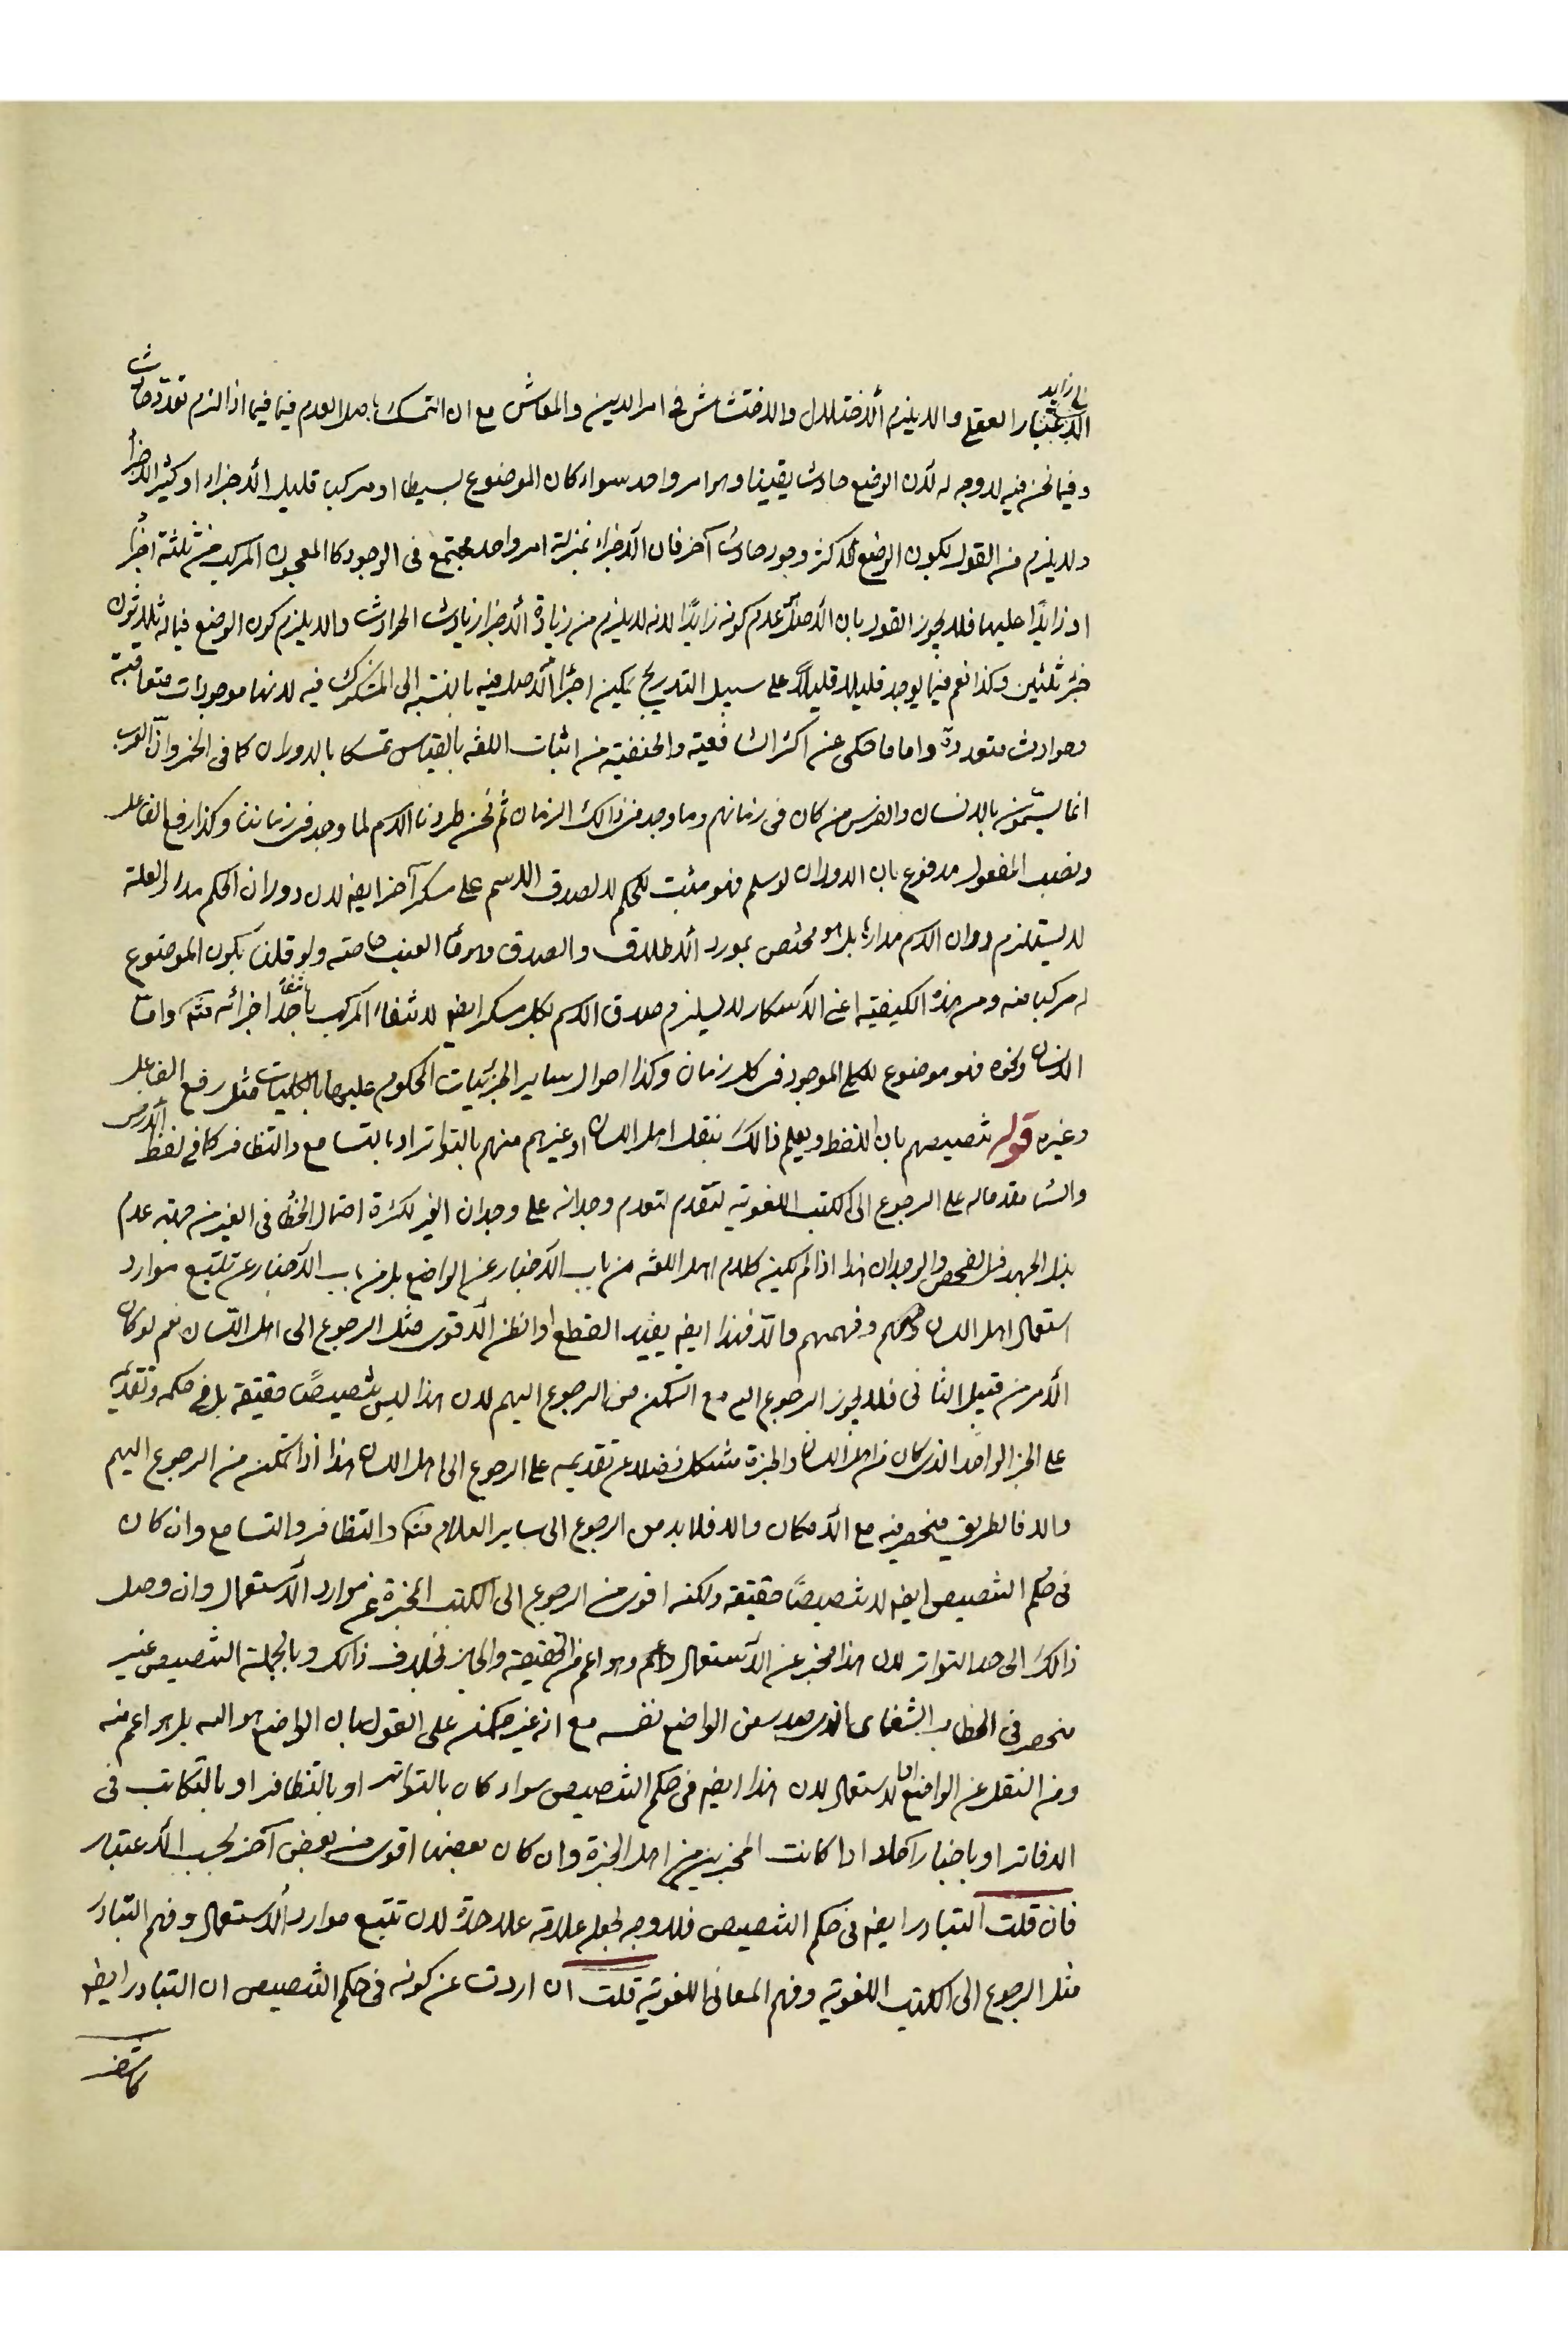 الاعتبار العقلي والا يلزم الاختلال والاغتشاش في امر الدين والمعاش مع ان التمسك باصل العدم فيما فيما اذا لزم تعدد حادث
وفيما نحن فيه لا وجه له لان الوضع حادث يقينا وهو امر واحد سواء كان الموضوع بسيطا او مركبا قليل الاجزاء او كثير الاجزاء
ولا يلزم من القول بكون الوضع للاكثر وجود حادث آخر فان الاجزاء بمنزلة امر واحد مجتمع في الوجود كالمعجون المركب من ثلثة اجزاء
او زايدًا عليها فلا يجوز القول بان الاصل عدم كونه زايدًا لانه لا يلزم من زيادة الاجزاء زيادت الحوادث والا يلزم كون الوضع فيما له ثلاثون
جزء ثلثين وكذا نعم فيما يوجد قليلا قليلاً على سبيل التدريج يمكن اجراء الاصل فيه بالنسبة الى المشكوك فيه لانها موجودات متعاقبة
وحوادث متعددة واما ما حكى عن اكثر الشافعية والحنفية من اثبات اللغة بالقياس تمسكا بالدوران كما في الخمر وان العرب
انما يسمون بالانسان والفرس من كان في زمانهم وما وجد في ذالك الزمان ثم نحن طردنا الاسم لما وجد في زماننا وكذا رفع الفاعل
ونصب المفعول مدفوع بان الدوران لو سلم فهو مثبت للحكم لا لصدق الاسم على مسكر آخر ايضا لان دوران الحكم مدار العلة
لا يستلزم دوران الاسم مدارها بل هو مختص بمورد الاطلاق والصدق وهو ماء العنب خاصة ولو قلنا بكون الموضوع
له مركبا منه ومن هذه الكيفية اعنى الاسكار لا يلزم صدق الاسم لكل مسكر ايضا لانتفاء المركب بانتفاء احد اجزائه منه واما
الانسان ونحوه فهو موضوع للكلي الموجود في كل زمان وكذا احوال ساير الجزئيات المحكوم عليها بالكليات مثل رفع الفاعل
وغيره قوله تنصيصهم بان اللفظ ويعلم ذالك بنقل اهل اللسان او غيرهم منهم بالتواتر او بالتسامع والتظافر كما في لفظ الارض
والسماء مقدماله على الرجوع الى الكتب اللغوية لتقدم لتقدم وجدانه على وجدان الغير لكثرة احتمال الخطاء في الغير من جهة عدم
بذل الجهد في الفحص والوجدان هذا اذا لم يكن كلام اهل اللغة من باب الاخبار عن الواضع بل من باب الاخبار عن تتبع موارد
استعمال اهل اللسان وفهمهم والا فهذا ايضا يفيد القطع او الظن الاقوى مثل الرجوع الى اهل اللسان نعم لو كان
الأمر من قبيل الثاني فلا يجوز الرجوع اليه مع التمكن من الرجوع اليهم لان هذا ليس تنصيصًا حقيقة بل في حكمه وتقديمه
على الخبر الواحد الذى كان من اهل اللسان والخبرة مشكل فضلا عن تقديمه على الرجوع الى اهل اللسان هذا اذا تمكن من الرجوع اليهم
والا فالطريق منحصر فيه مع الامكان والا فلا بد من الرجوع الى ساير العلائم منه والتظافر والتسامع وان كان
في حكم التنصيص ايضا لا تنصيصًا حقيقة ولكنه اقوى من الرجوع الى الكتب المخبرة عن موارد الاستعمال وان وصل
ذالك الى حد التواتر لان هذا مخبر عن الاستعمال وهو اعم من الحقيقة والمجاز بخلاف ذالك وبالجملة التنصيص غير
منحصر في الخطاب الشفاهى الذى صدر من الواضع نفسه مع انه غير ممكن على القول بان الواضع هو الله بل هو اعم منه
ومن النقل عن الواضع او الاستعمال لان هذا ايضا في حكم التنصيص سواء كان بالتواتر او بالتظافر او بالتكاتب في
الدفاتر او باخبار آحاد اذا كانت المخبرين من اهل الخبرة وان كان بعضها اقوى من بعض آخر بحسب الاعتبار
فان قلت التبادر ايضا في حكم التنصيص فلا وجه لجعله علامة علاحدة لان تتبع موارد الاستعمال وفهم التبادر
مثل الرجوع الى الكتب اللغوية وفهم المعانى اللغوية قلت ان اردت عن كونه في حكم التنصيص ان التبادر ايضا